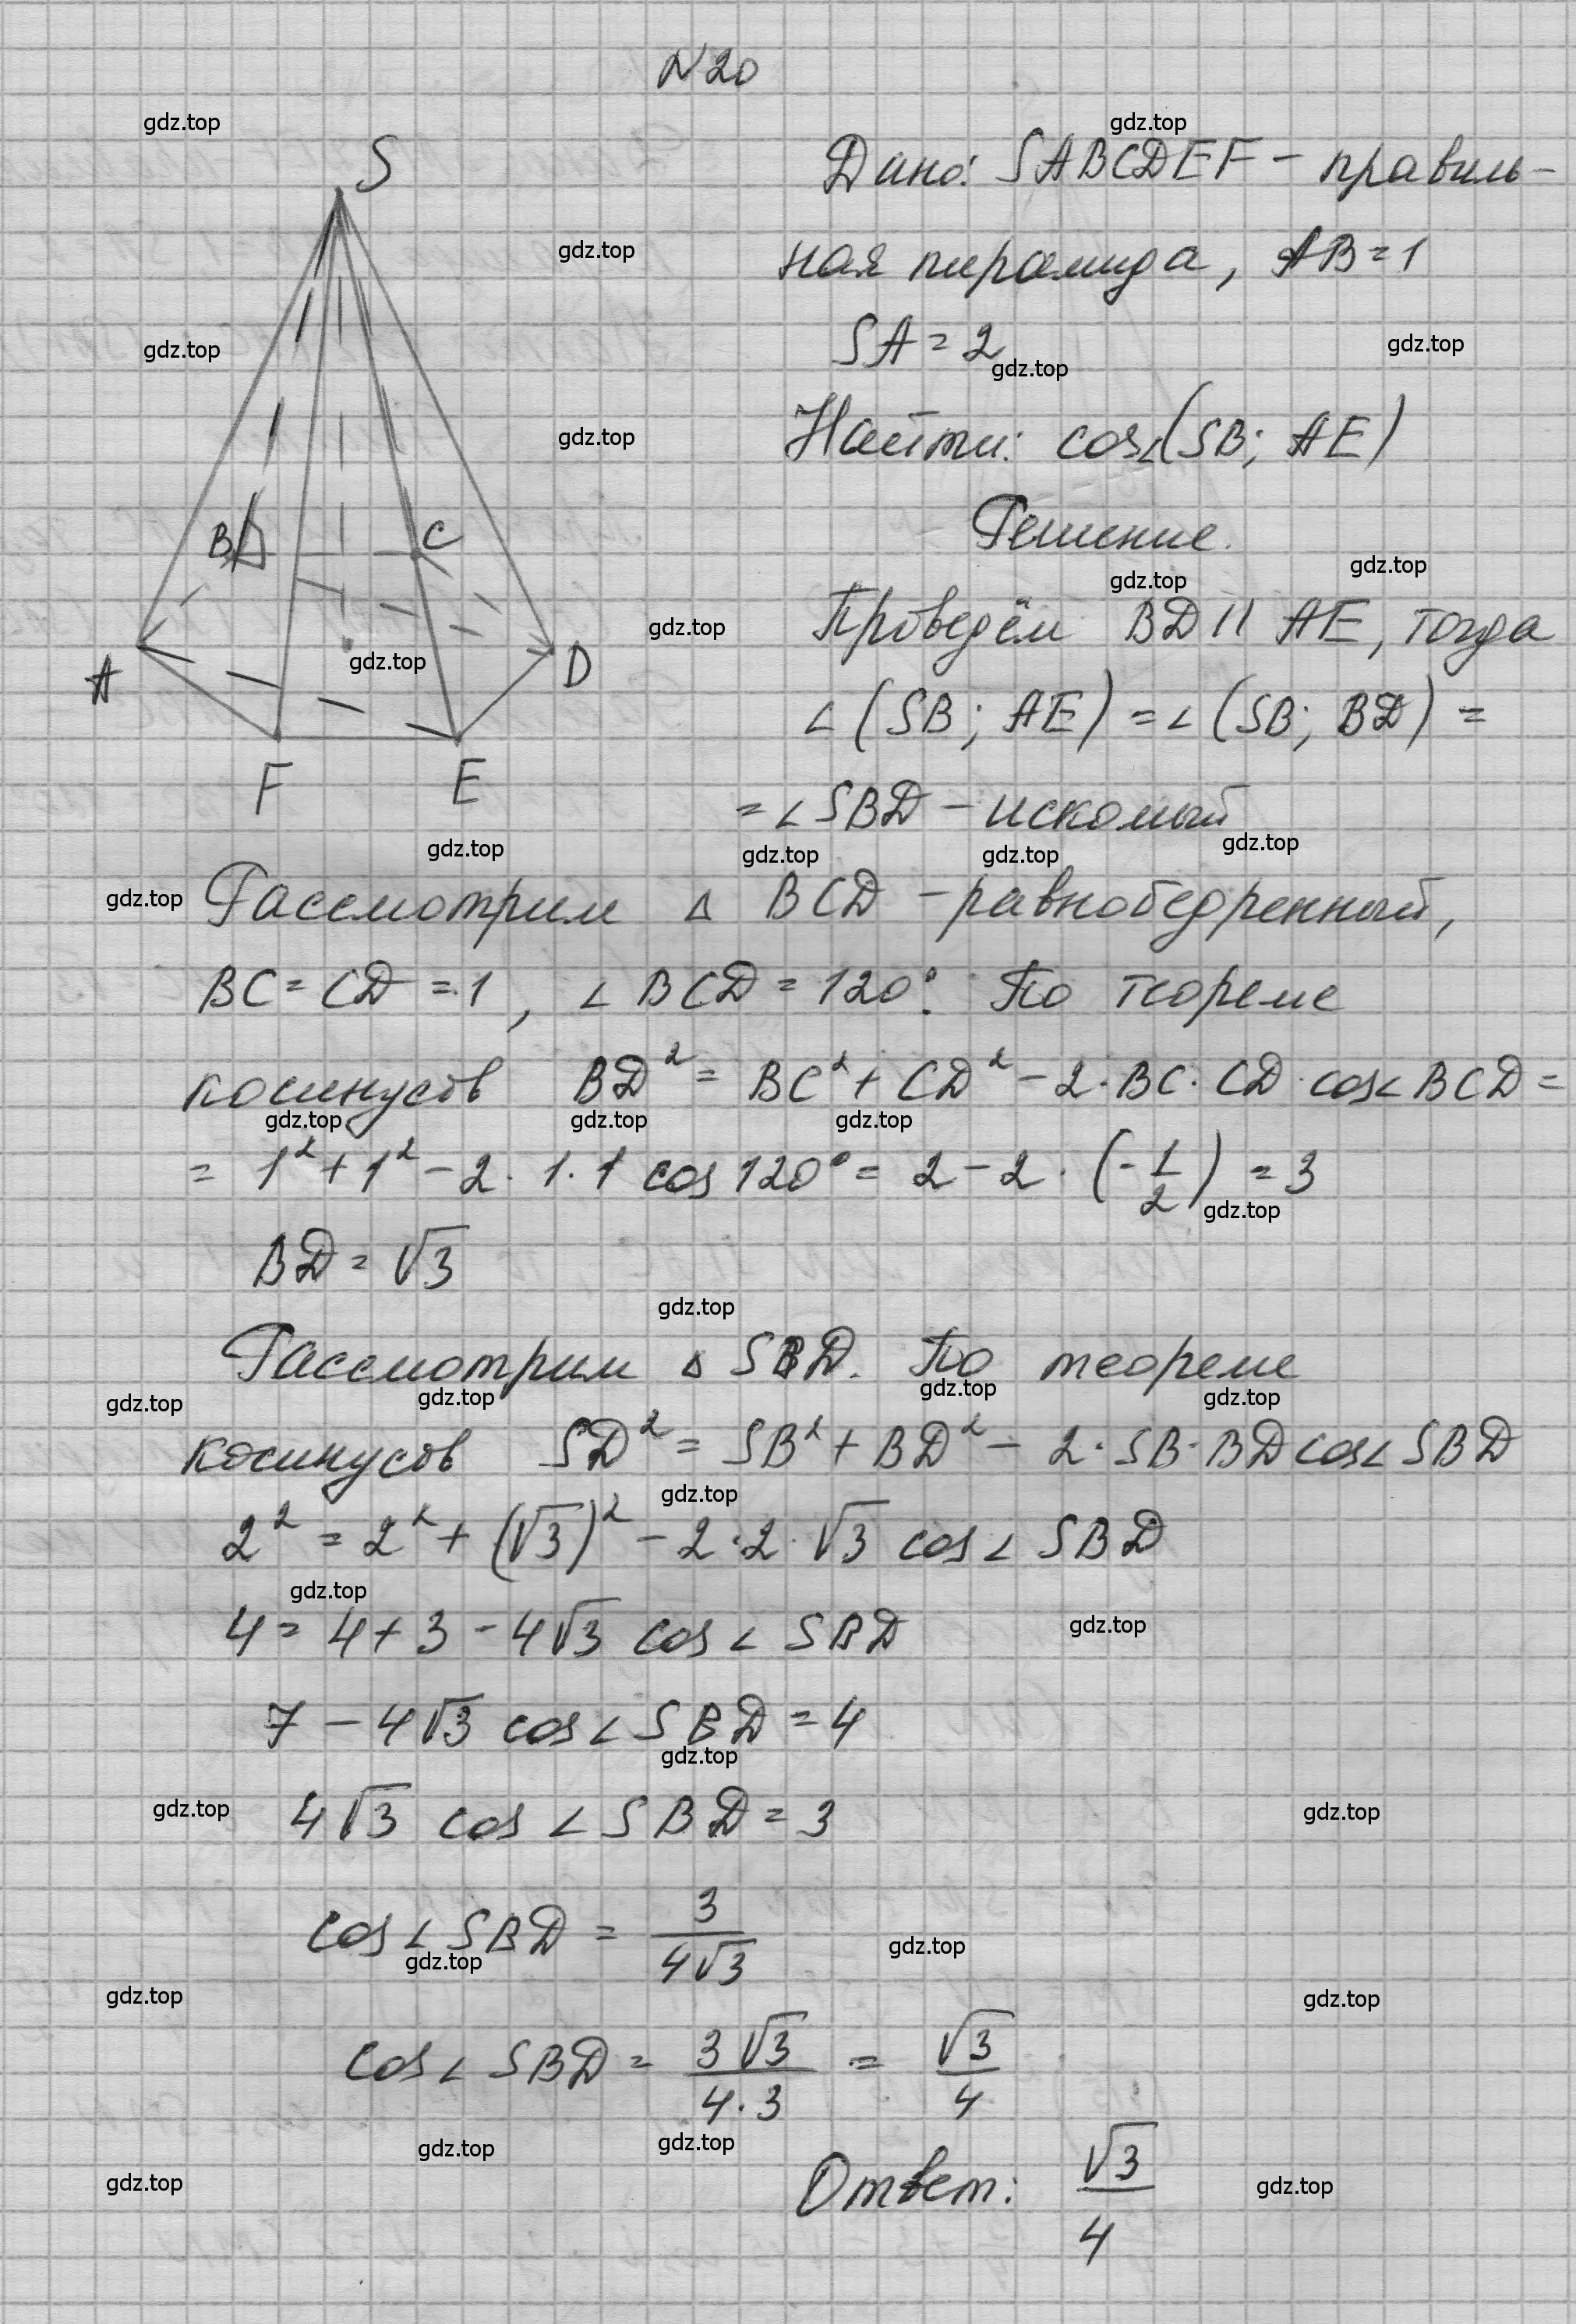 N20
S
B
C
A
D
F
E
Дано: SABCDEF – правиль-
ная пирамида, AB = 1
SA = 2
Найти: cos∠(SB; AE)
Решение.
Проведём BD || AE, тогда
∠(SB; AE) = ∠(SB; BD) =
= ∠SBD – искомый
Рассмотрим △ BCD – равнобедренный,
BC = CD = 1, ∠BCD = 120°. По теореме
косинусов BD² = BC² + CD² – 2·BC·CD·cos∠BCD =
= 1² + 1² – 2·1·1 cos 120° = 2 – 2·(-1/2) = 3
BD = √3
Рассмотрим △ SBD. По теореме
косинусов SD² = SB² + BD² – 2·SB·BD cos∠SBD
2² = 2² + (√3)² – 2·2·√3 cos∠SBD
4 = 4 + 3 – 4√3 cos∠SBD
7 – 4√3 cos∠SBD = 4
4√3 cos∠SBD = 3
cos∠SBD = 3/(4√3)
cos∠SBD = 3√3/(4·3) = √3/4
Ответ: √3/4
gdz.top